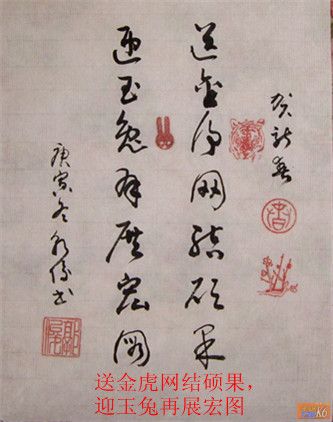 贺新春
送金虎網结硕果
迎玉兔再展宏图
庚寅冬
书
送金虎网结硕果，
迎玉兔再展宏图